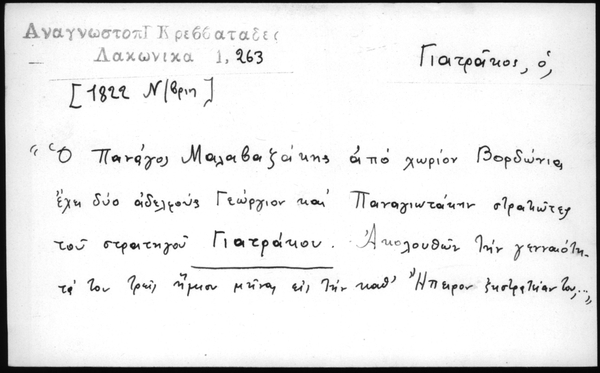 Αναγνωστοπ Γ Κρεββαταδες
Λακωνικα 1, 263
Γιατράκος, ὁ,
[1822 Ν/βρίῃ]
"Ὁ Πανάγος Μαλαβαζάκης ἀπό χωρίον Βορδώνια
ἔχει δύο ἀδελφούς Γεώργιον καί Παναγιωτάκην στρατιώτες
τοῦ στρατηγοῦ Γιατράκου. Ἀκολουθῶν τήν γενναιότη-
τά του τρεῖς ἥμισυ μῆνας εἰς τήν καθ' Ἤπειρον ἐκστρατείαν του,..."